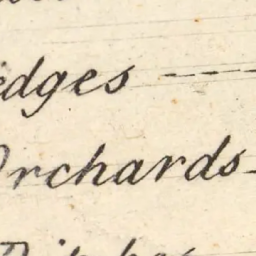 edges
Orchards